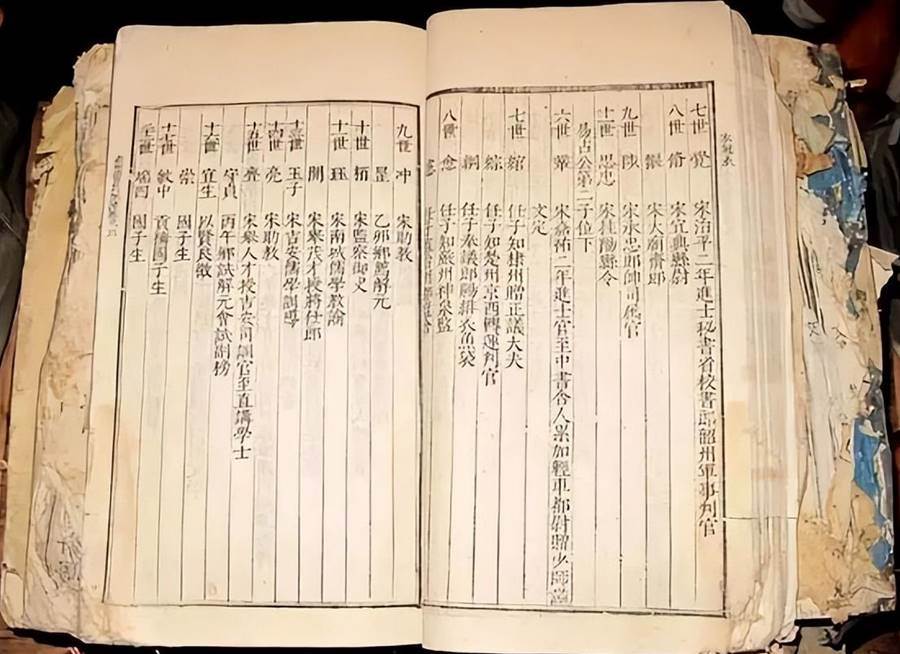 七世 覺 宋治平二年進士秘書省校書郎韶州軍事判官
八世 脩 宋宜興縣尉
宋太廟齋郎
九世 宋承忠郎帥司屬官
十世 思忠 宋桂陽縣令
易占公第二子位下
六世 鞏 宋嘉祐二年進士官至中書舍人累加輕車都尉贈少師諡
文定
七世 綰 任子知棣州贈正議大夫
綜 任子知楚州京西轉運判官
綱 任子奉議郎賜緋衣魚袋
八世 悆 任子知嚴州神泉監
九世 冲 宋助教
乙卯鄉薦解元
十世 宋監察御史
十一世 珏 宋南城儒學教諭
開 宋舉茂才授將仕郎
十三世 玉子 宋吉安儒學訓導
十四世 亮 宋助教
十五世 齊 宋舉人才授吉安司訓官至直講學士
守貞 丙午鄉試解元會試副榜
十六世 宜生 以賢良徵
崇 國子生
十七世 敏中 貢擢國子生
國子生